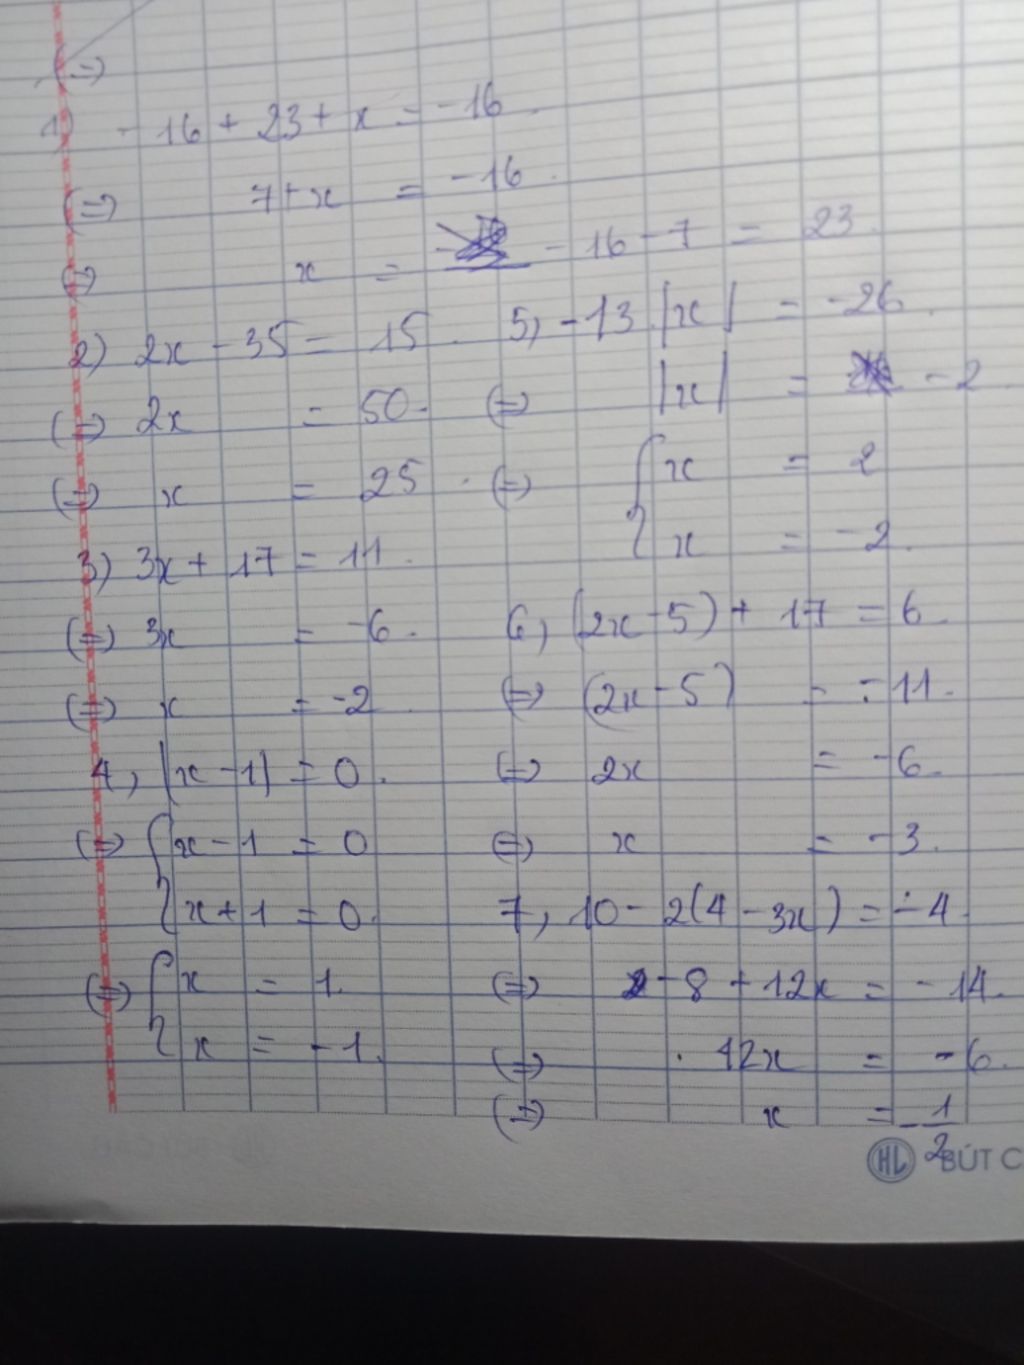 (=)
1) - 16 + 23 + x = -16
(=) 7 + x = -16
(=) x = - 16 - 7 = 23
2) 2x - 35 = 15.
(=) 2x = 50.
(=) x = 25
3) 3x + 17 = 11.
(=) 3x = -6.
(=) x = -2
4, |x - 1| = 0.
(=) { x - 1 = 0
x + 1 = 0.
(=) { x = 1.
x = -1.
5, -13 |x| = -26.
(=) |x| = -2
(=) { x = 2
x = -2.
6, (2x - 5) + 17 = 6.
(=) (2x - 5) = -11.
(=) 2x = -6.
(=) x = -3.
7, 10 - 2(4 - 3x) = -4.
(=) 2 - 8 + 12x = -14.
(=) 12x = -6.
(=) x = -1/2
HL BÚT C